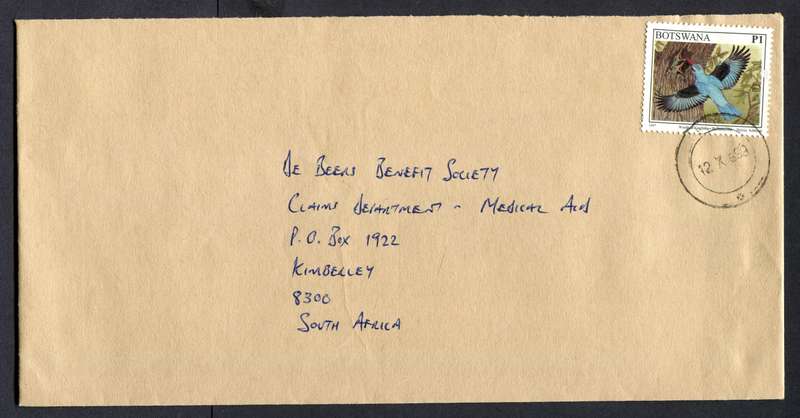 BOTSWANA P1
De Beers Benefit Society
Claims Department - Medical Aid
P.O. Box 1922
Kimberley
8300
South Africa
12. X